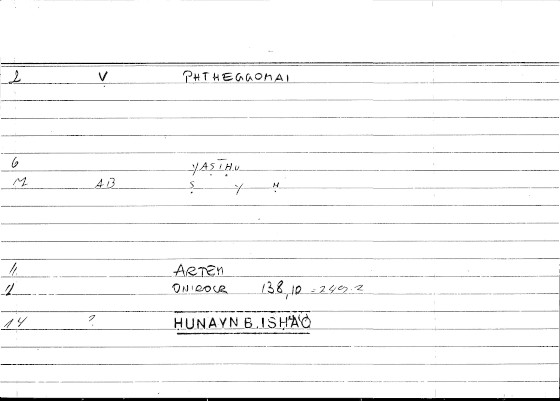 2 V PHTHEGGOMAI
6 YAṢĪḤU
M AB Ṣ Y Ḥ
11 ARTEM
ONIROCR 138,10 = 249.2
14 ? HUNAYN B. ISHAQ